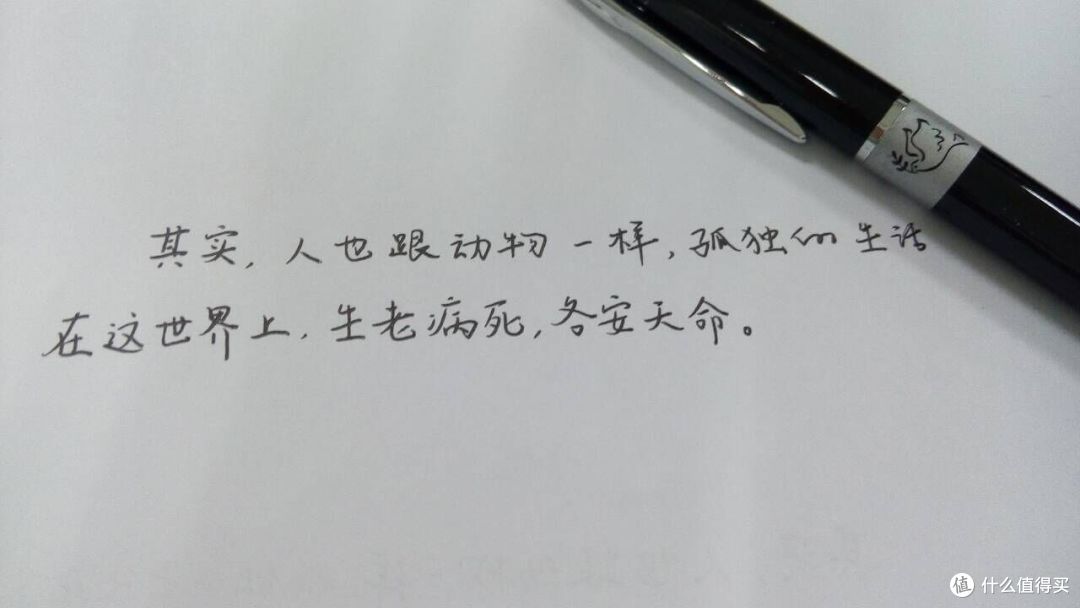 其实,人也跟动物一样,孤独的生活
在这世界上,生老病死,各安天命。
值 什么值得买